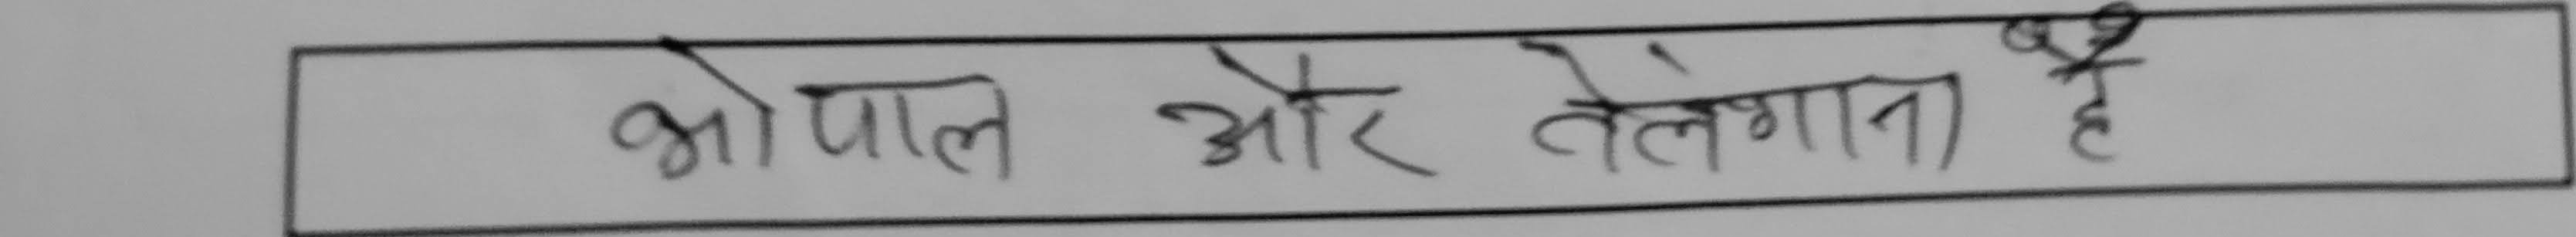 भोपाल और तेलंगाना है